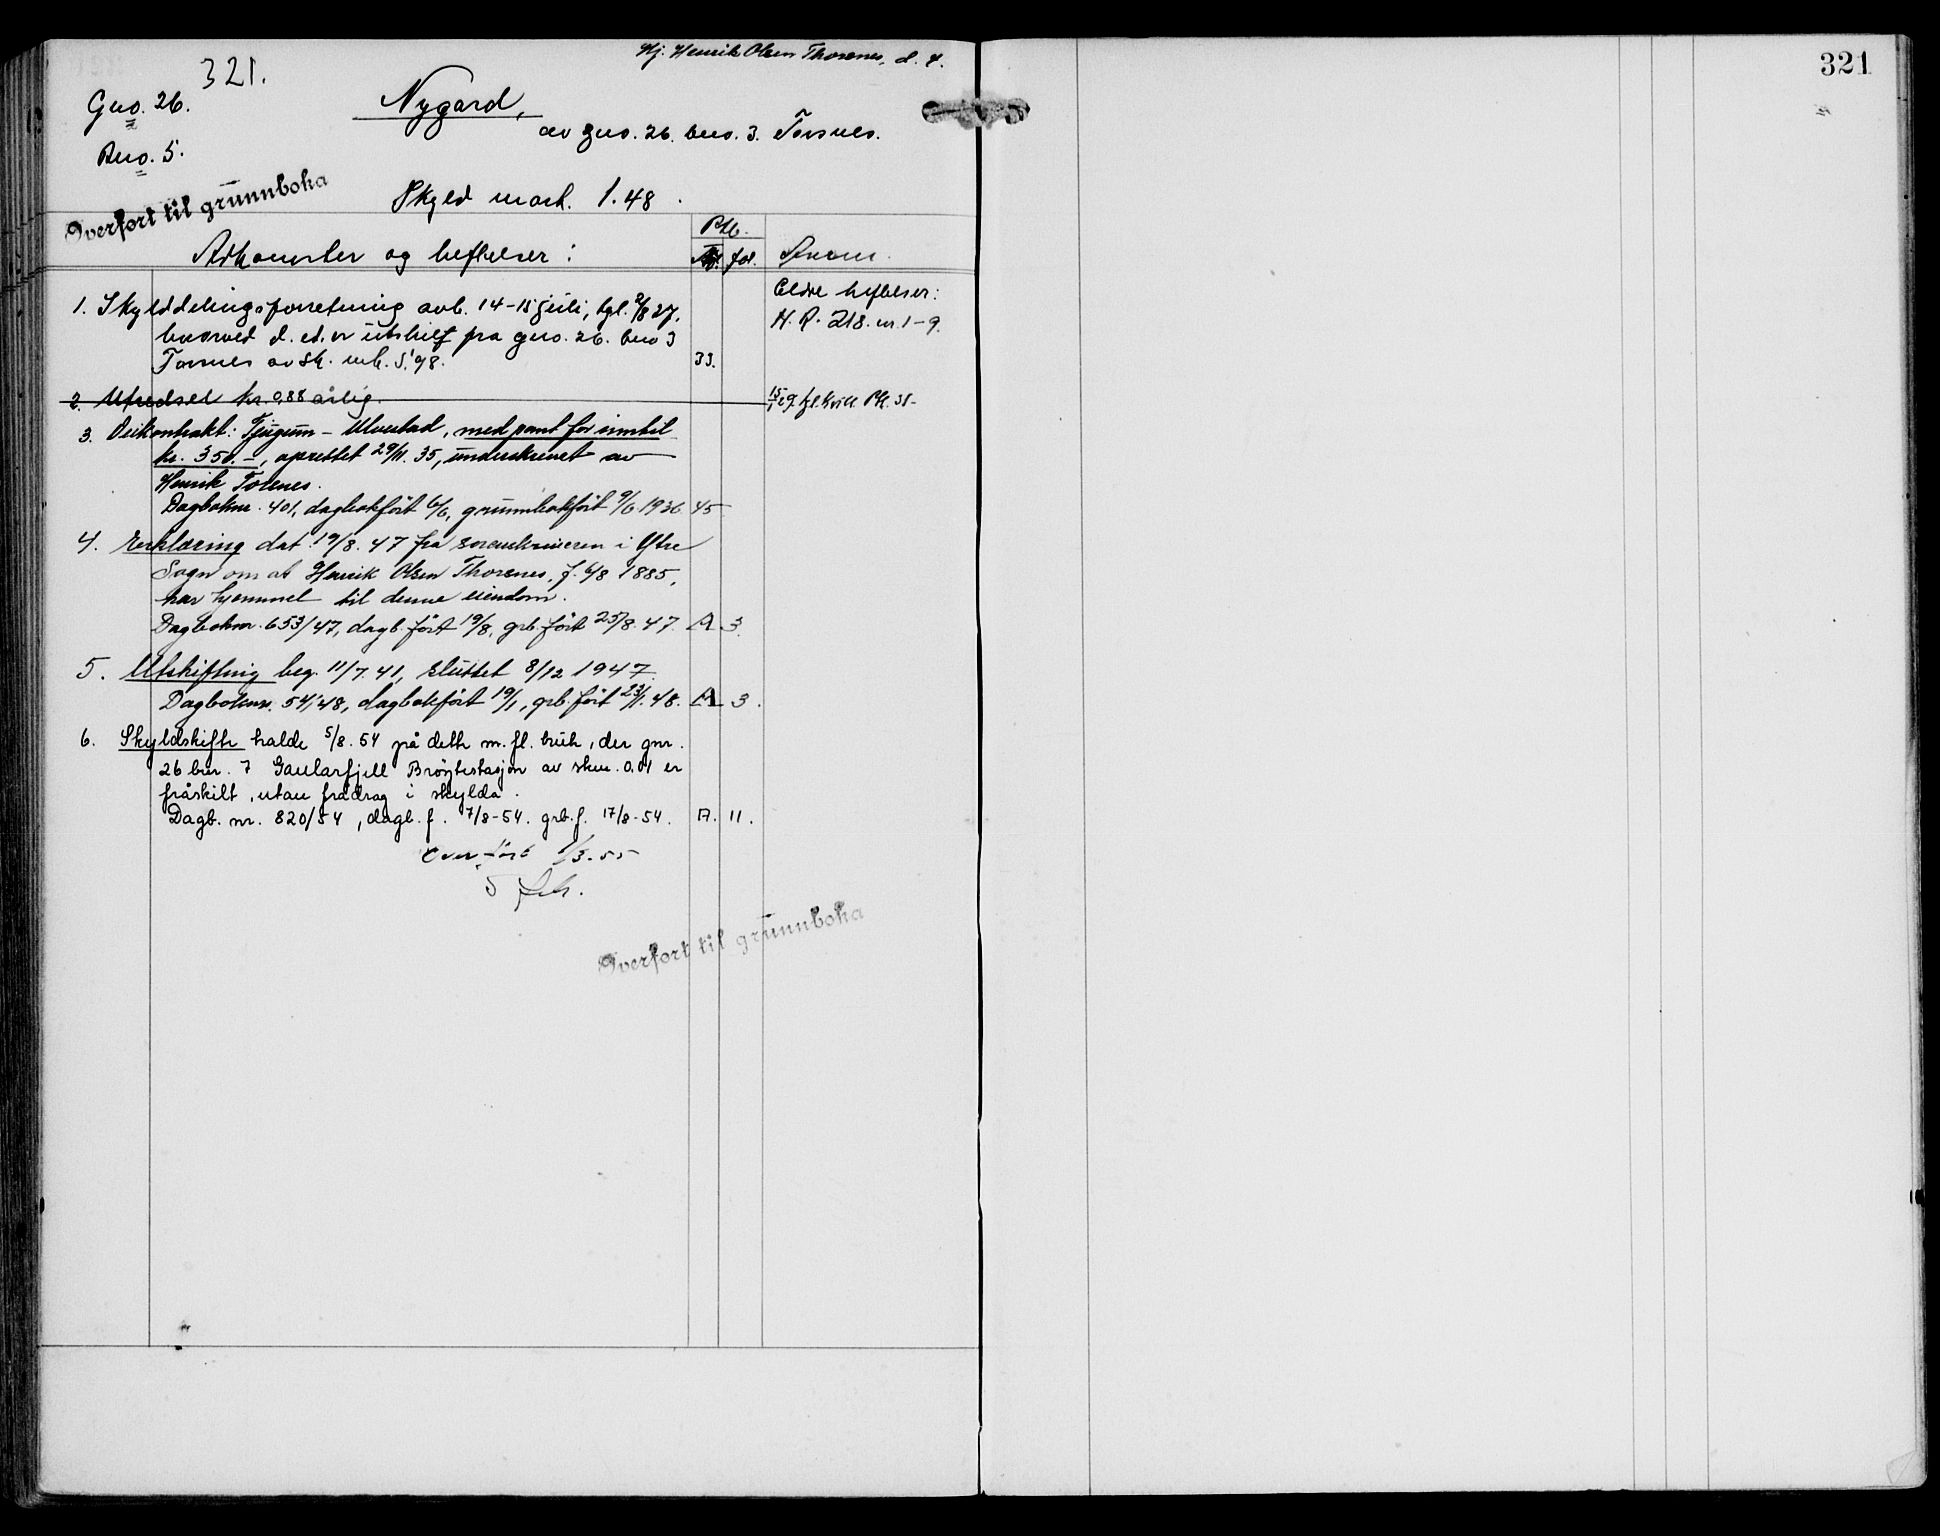 Hj. Henrik Olsen Thorsnes, d. 4.
321.
321
Gno. 26.
Bno. 5.
Nygard,
av gno. 26. bno. 3. Torsnes.
Overført til grunnboka
Skyld mark. 1.48.
Adkomster og heftelser:
Ptb.
fol.
Anm.
1. Skylddelingsforretning avh. 14-15 juli, tgl. 2/8 27.
hvorved d. ed. er utskilt fra gno. 26. bno 3
Torsnes av sk. mk. 5.98.
33.
Eldre heftelser:
H. R. 218. nr. 1-9.
2. Utredsel kr. 0,88 årlig.
3. Veikontrakt: Tjugum - Ulvestad, med pant for inntil
kr. 350.-, oprettet 29/11. 35, underskrevet av
Henrik Torsnes.
Dagboknr. 401, dagbokført 6/6, grunnbokført 9/6 1936. 45
4. Erklæring dat. 19/8. 47 fra sorenskriveren i Ytre
Sogn om at Henrik Olsen Thorsnes, f. 6/8 1885,
har hjemmel til denne eiendom.
Dagboknr. 653/47, dagb. ført 19/8, grb. ført 25/8. 47. A. 3.
5. Utskiftning beg. 11/7. 41, sluttet 8/12 1947.
Dagboknr. 54/48, dagbokført 19/1, grb. ført 23/1. 48. A 3.
6. Skyldskifte halde 5/8. 54 på dette m. fl. bruk, der gnr.
26 bnr. 7 Gaularfjell Brøytestasjon av skm. 0,01 er
fråskilt, utan frådrag i skylda.
Dagb. nr. 820/54, dagb. f. 7/8-54. grb. f. 17/8-54. A. 11.
Overført 1/3-55
Overført til grunnboka